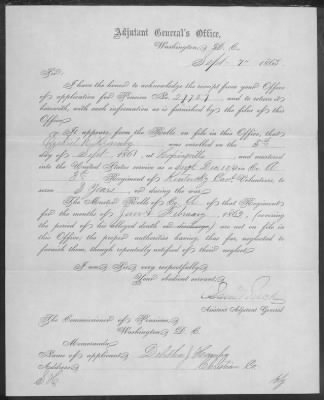 Adjutant General's Office,
Washington, D. C.
Sept. 7th 1863
Sir:
I have the honor to acknowledge the receipt from your Office
of application for Pension No. 21727, and to return it
herewith, with such information as is furnished by the files of this
Office.
It appears from the Rolls on file in this Office, that
was enrolled on the 5th
day of Sept. 1861, at Hopkinsville and mustered
into the United States service as a in Co. A
3d Regiment of Kentucky Cav. Volunteers, to
serve 3 Years or during the war.
The Muster Rolls of Co. A of that Regiment
for the months of Jan & February, 1862, (covering
the period of his alleged death or discharge) are not on file in
this Office, the proper authorities having, thus far, neglected to
furnish them, though repeatedly notified of their neglect.
I am, Sir, very respectfully,
Your obedient servant,
Assistant Adjutant General
The Commissioner of Pensions,
Washington, D. C.
Memoranda:
Name of applicant,
Address, Christian Co.